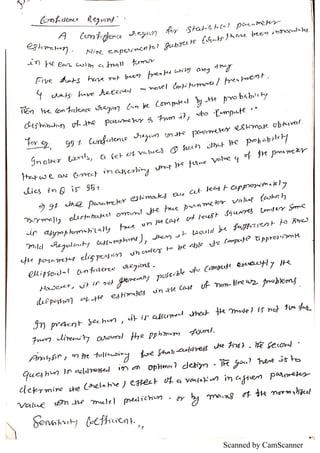 Confidence Region:
A Confidence region for statistical parameter
estimation. Nine experimental subjects (Rats) have been inoculated
in the Ear with a small tumor
Five Rats have not been treated with any drug
4 Rats have Received novel (antitumoral) treatment.
Then the Confidence region can be Computed by the probability
distribution of the parameter & from it, to Compute..
For eg. 95% Confidence region on the parameter estimate obtained.
In other words, a set of values Q such that the probability
that we are correct in asserting that the true value of the parameter
lies in Q is 95%
If the parameter estimates are at least approximately
normally distributed around the true parameter value (which
is asymptotically true in the Case of least squares under some
mild Regularity assumptions), then it would be sufficient to know
the parameter dispersion in order to be able to Compute approximate
ellipsoidal confidence regions.
However, it is not generally possible to Compute exactly the
dispersion of the estimates in the Case of non-linear problems.
In present Section, it is assumed that the model is not too far
From linearity around the optimum found.
Analysis, in the following we shall address the first. The Second
question is addressed in on optimal design. The goal here is to
determine the (relative) effect of a variation in a given parameter
value on the model prediction. or by means of the normalized
Sensitivity Coefficient.,
Scanned by CamScanner